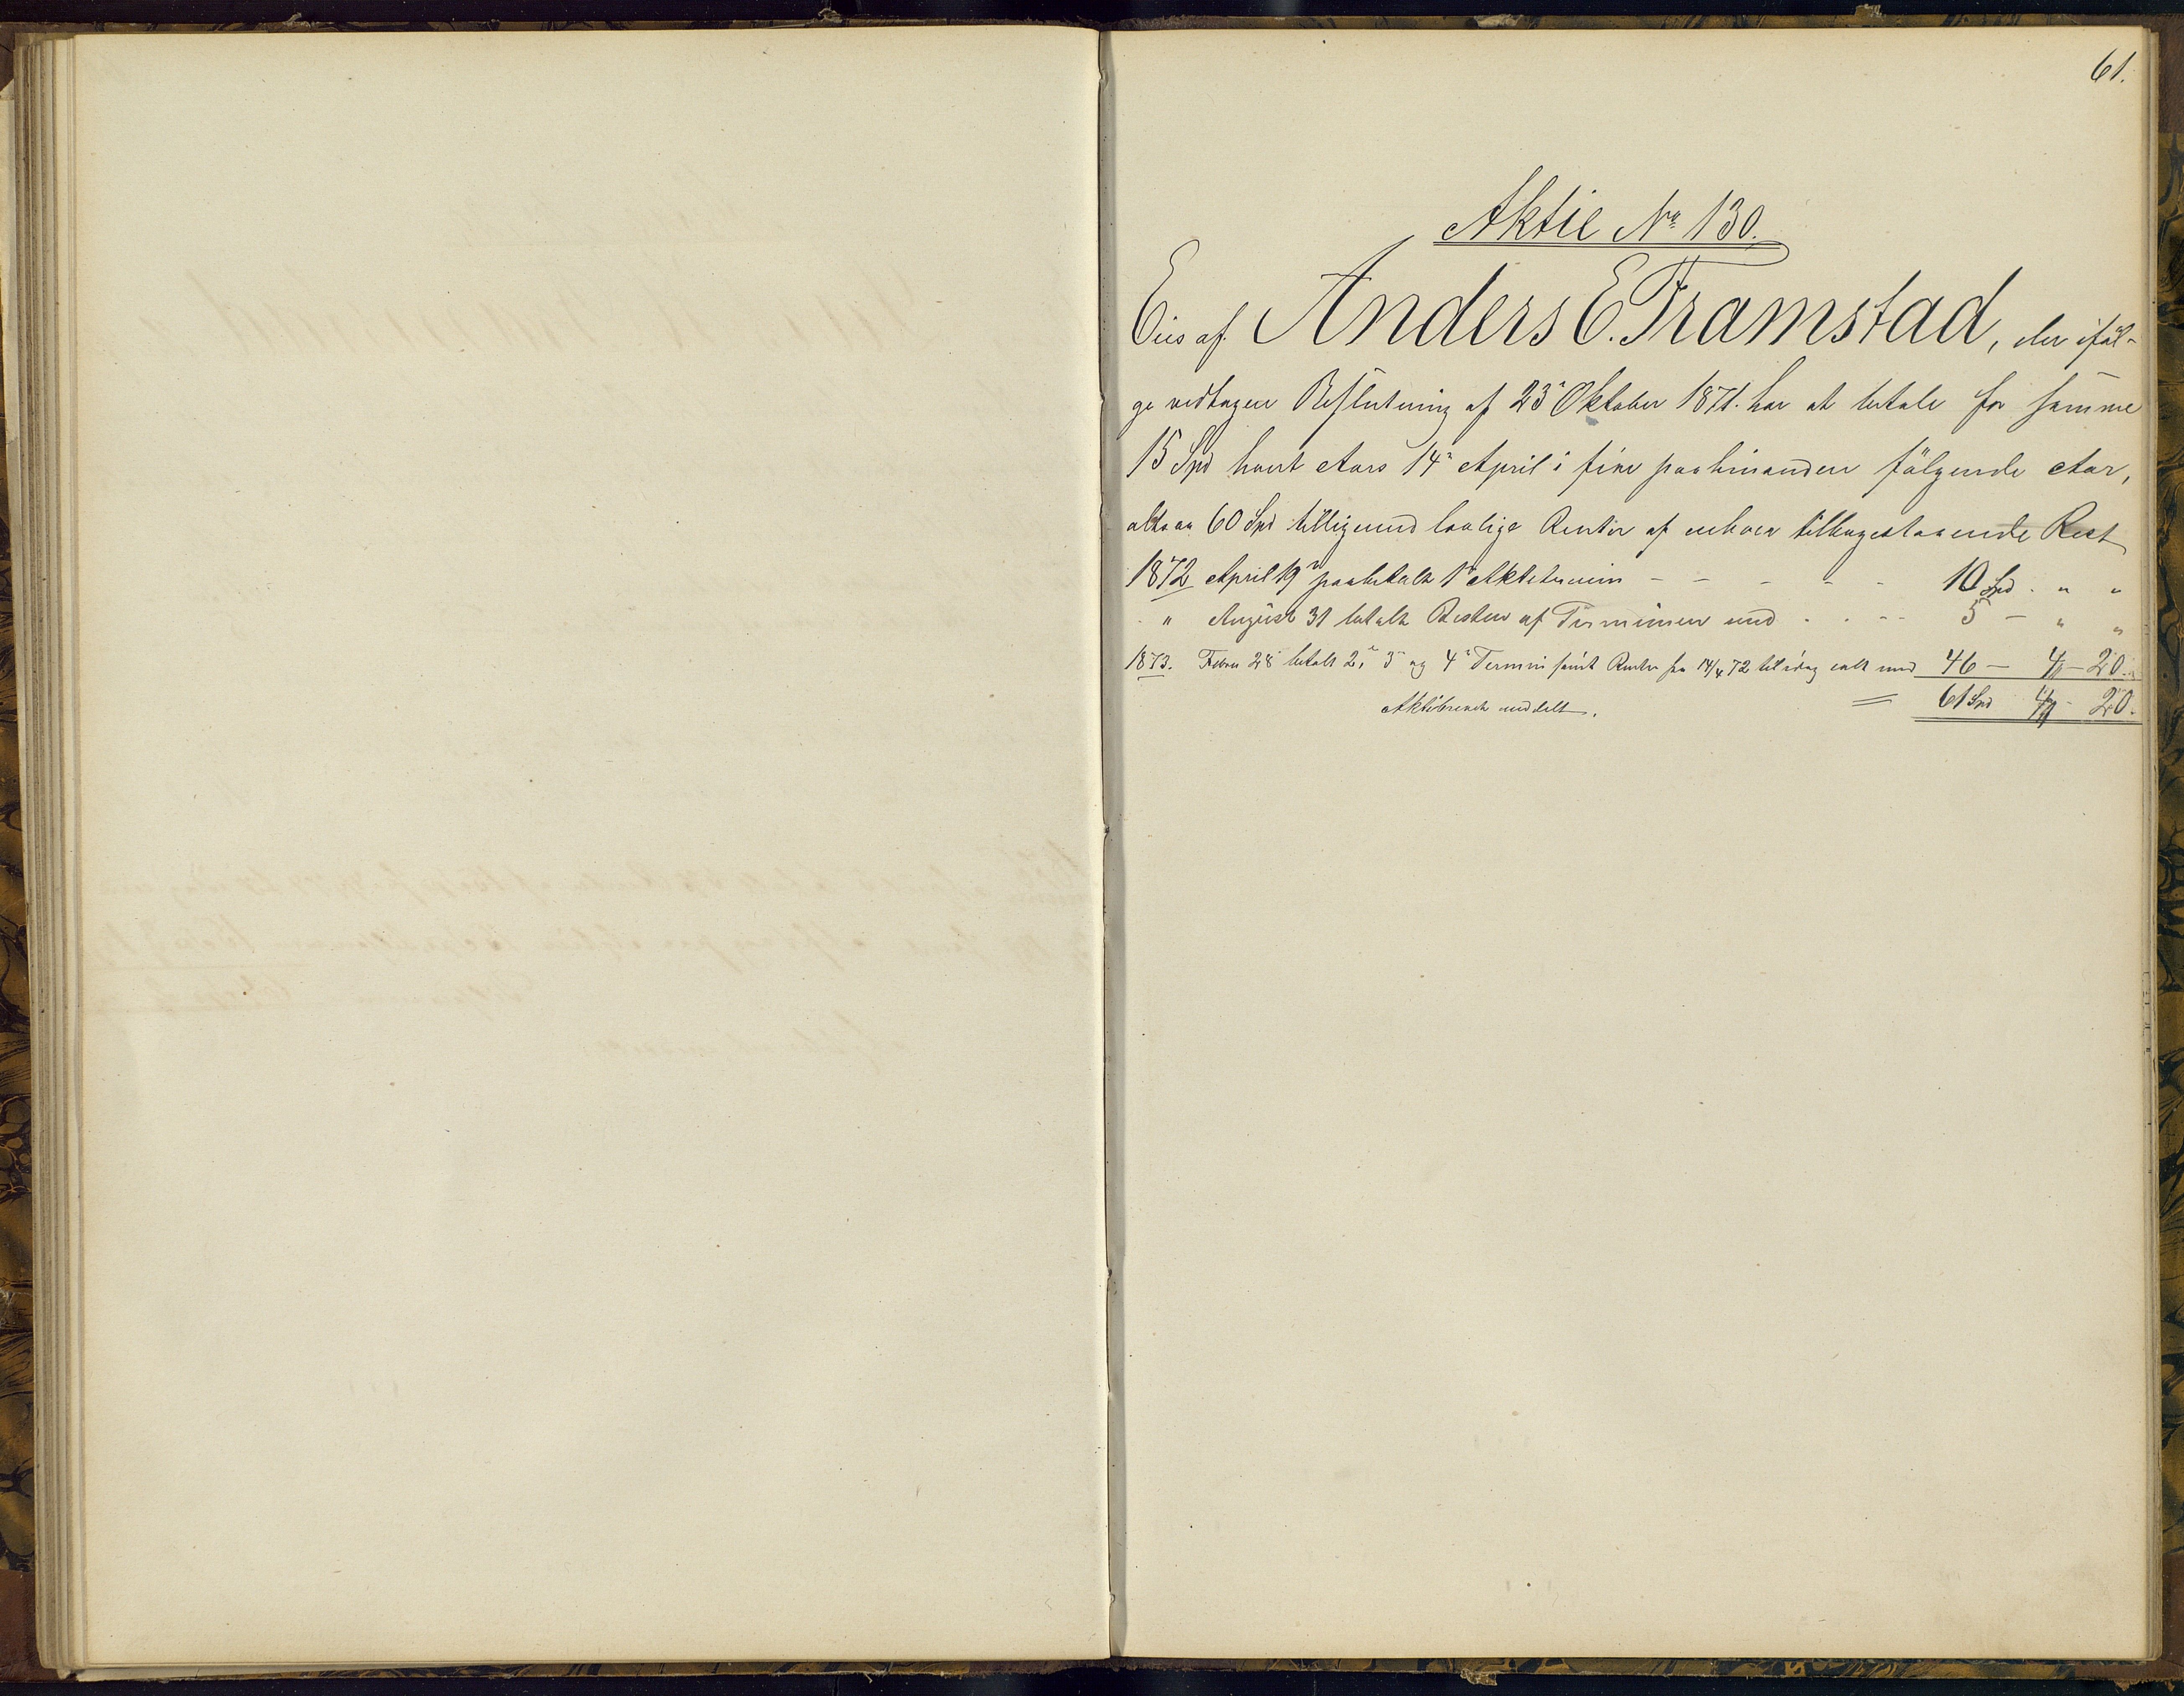 61.
Aktie No 130.
Eies af Anders E. Framstad, der iføl-
ge vedtagen Beslutning af 23' Oktober 1871. har at betale for samme
15 Spd hvert Aars 14' April i fire paahinanden følgende Aar,
altsaa 60 Spd tilligemed lovlige Renter af enhver tilbagestaaende Rest
1872 April 19' paabetalt 1' Aktietermin - - - - - 10 Spd. " "
" August 31 betalt Resten af Terminen med . . - - 5 - " "
1873. Febru 28 betalt 2', 3' og 4' Termin samt Renter fra 14/4 72 til idag ialt med 46 - 4 - 20.
Aktiebrevet meddelt. = 61 Spd 4 - 20.